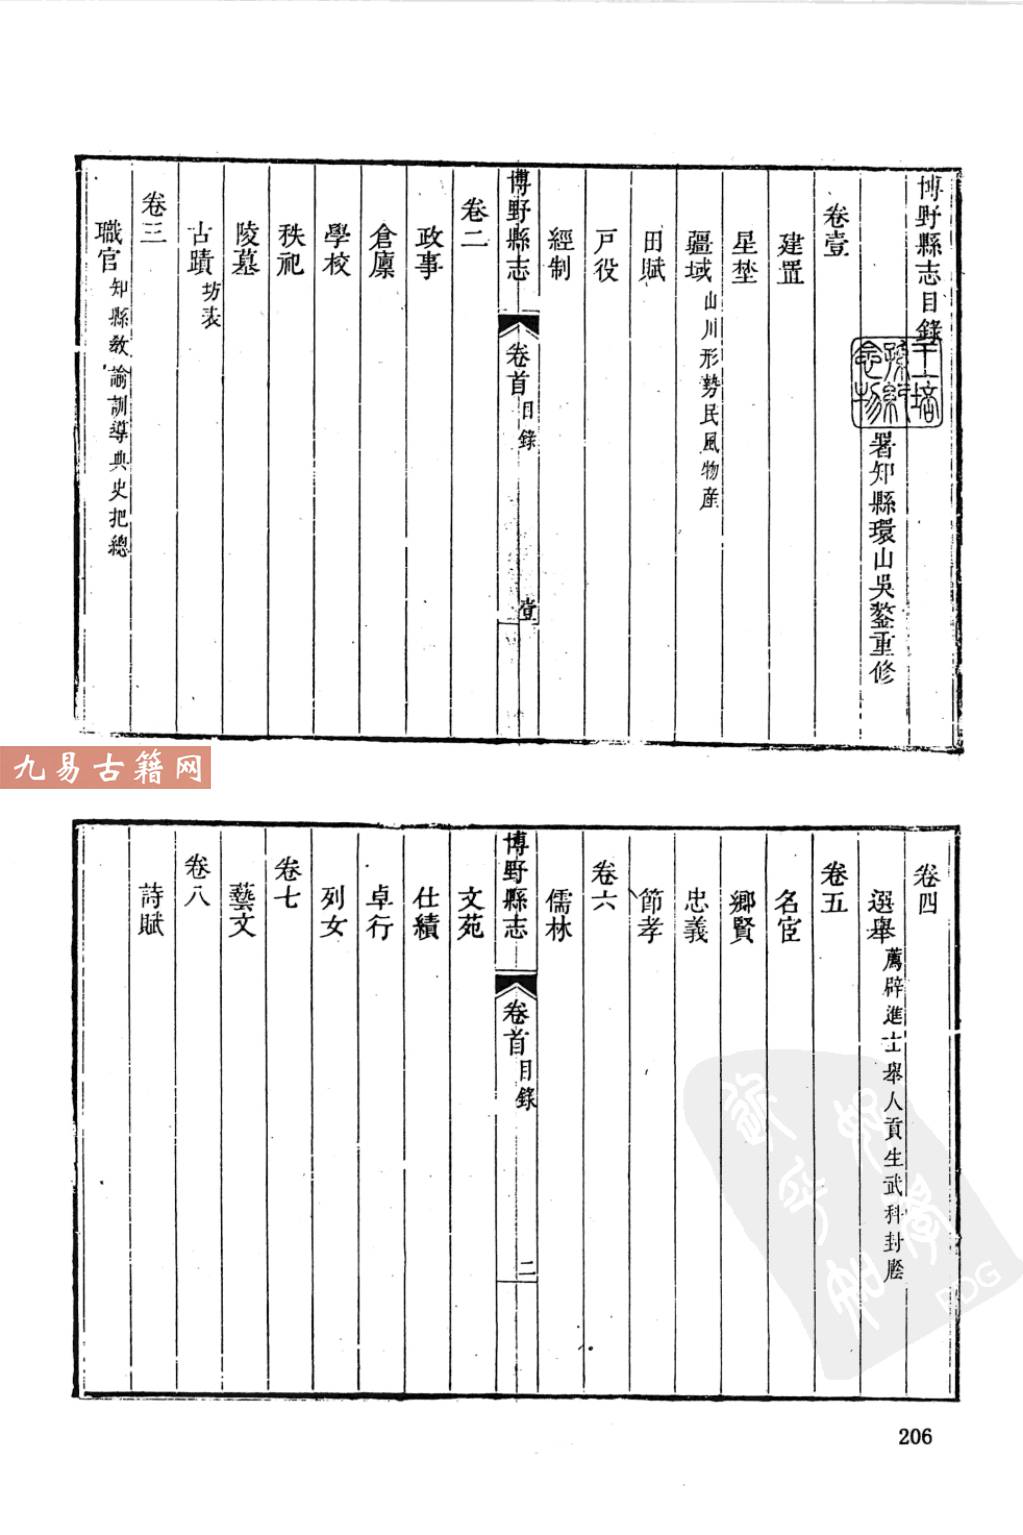 博野縣志目錄
署知縣環山吳鏊重修
卷壹
建置
星埜
疆域 山川形勢民風物產
田賦
戶役
經制
博野縣志 卷首 目錄 壹
卷二
政事
倉廩
學校
秩祀
陵墓
古蹟 坊表
卷三
職官 知縣教諭訓導典史把總
九易古籍网
卷四
選舉 薦辟進士舉人貢生武科封廕
卷五
名宦
鄉賢
忠義
節孝
卷六
儒林
博野縣志 卷首 目錄 二
文苑
仕績
卓行
列女
卷七
藝文
卷八
詩賦
PDG
206